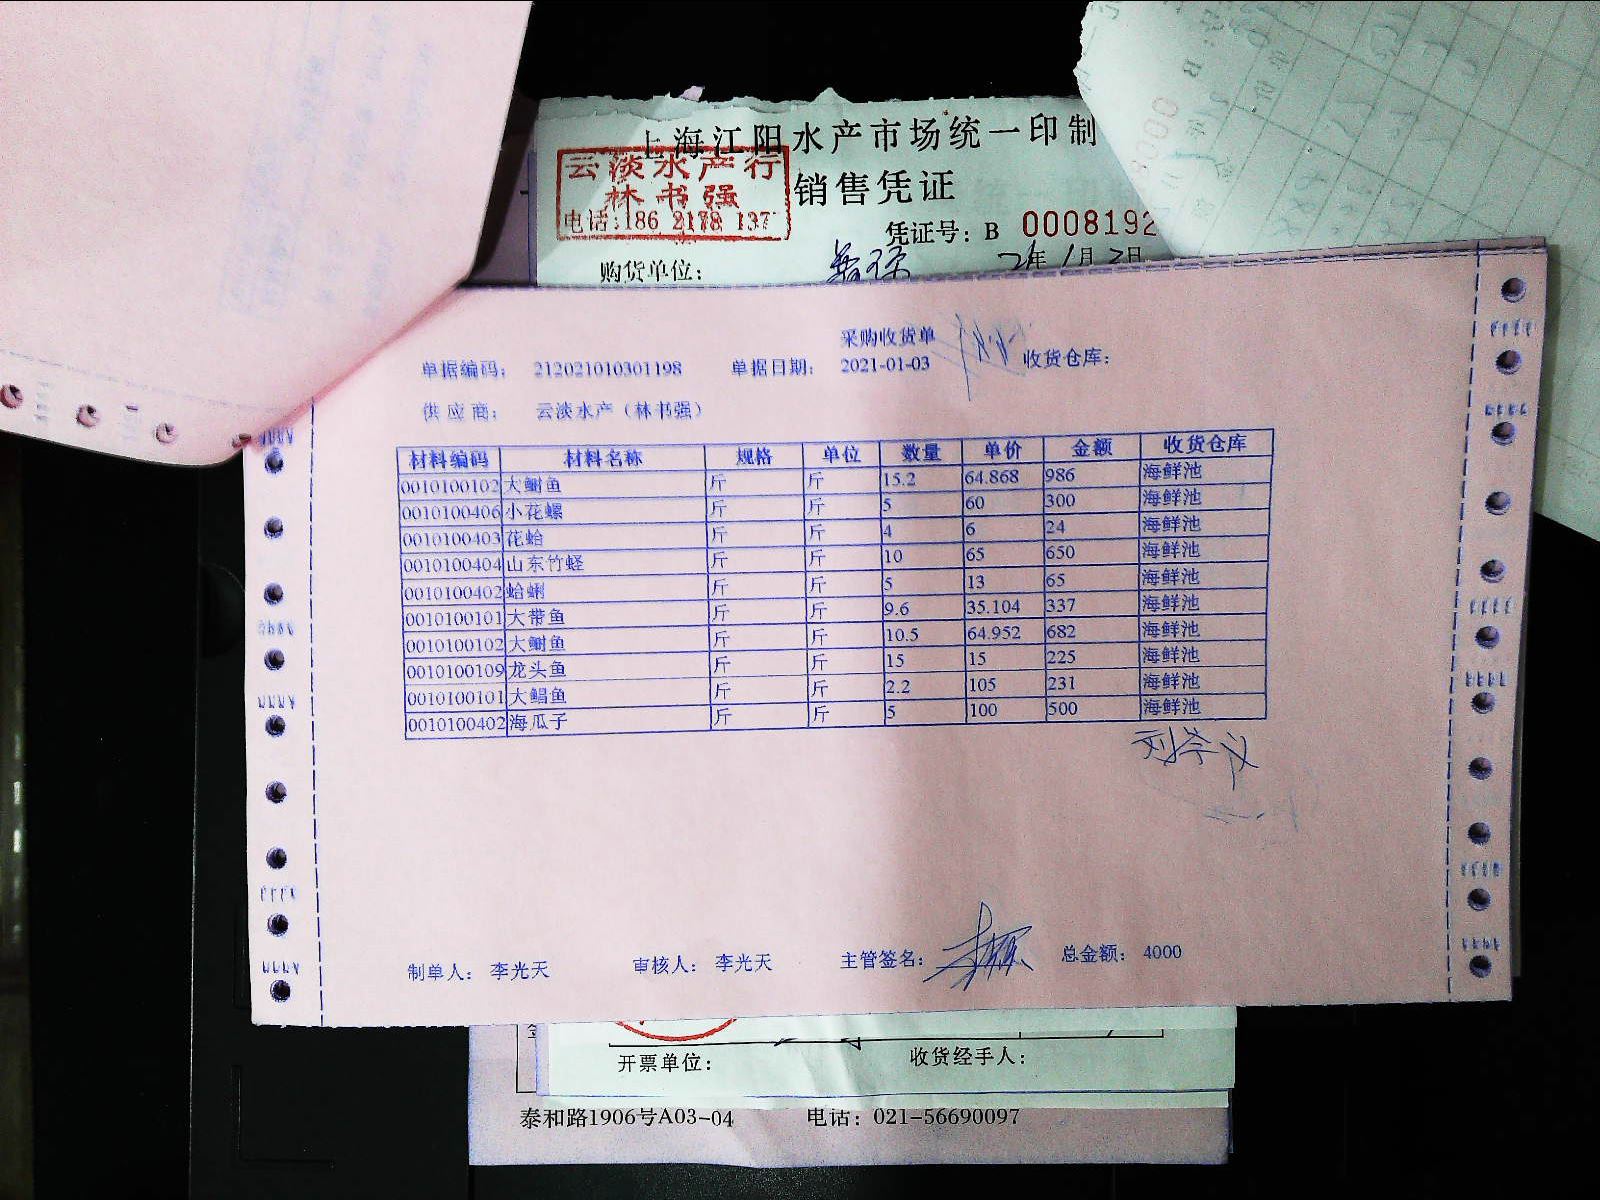 上海江阳水产市场统一印制
云淡水产行
林书强
电话:186 2178 137
销售凭证
凭证号: B 0008192
购货单位:
21年1月2日
采购收货单
单据编码: 212021010301198 单据日期: 2021-01-03 收货仓库:
供应商: 云淡水产（林书强）
材料编码 材料名称 规格 单位 数量 单价 金额 收货仓库
0010100102 大鲥鱼 斤 斤 15.2 64.868 986 海鲜池
0010100406 小花螺 斤 斤 5 60 300 海鲜池
0010100403 花蛤 斤 斤 4 6 24 海鲜池
0010100404 山东竹蛏 斤 斤 10 65 650 海鲜池
0010100402 蛤蜊 斤 斤 5 13 65 海鲜池
0010100101 大带鱼 斤 斤 9.6 35.104 337 海鲜池
0010100102 大鲥鱼 斤 斤 10.5 64.952 682 海鲜池
0010100109 龙头鱼 斤 斤 15 15 225 海鲜池
0010100101 大鲳鱼 斤 斤 2.2 105 231 海鲜池
0010100402 海瓜子 斤 斤 5 100 500 海鲜池
制单人: 李光天 审核人: 李光天 主管签名: 总金额: 4000
开票单位: 收货经手人:
泰和路1906号A03-04 电话: 021-56690097